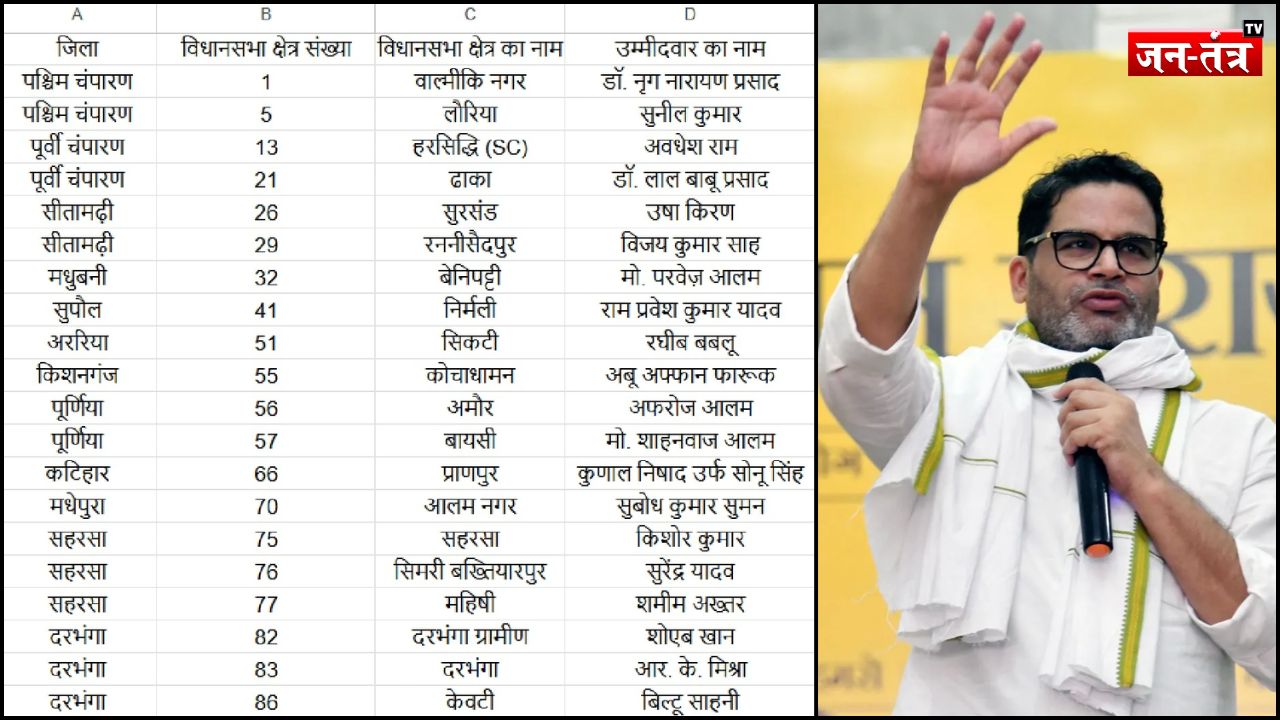 A B C D
जिला विधानसभा क्षेत्र संख्या विधानसभा क्षेत्र का नाम उम्मीदवार का नाम
पश्चिम चंपारण 1 वाल्मीकि नगर डॉ. नृग नारायण प्रसाद
पश्चिम चंपारण 5 लौरिया सुनील कुमार
पूर्वी चंपारण 13 हरसिद्धि (SC) अवधेश राम
पूर्वी चंपारण 21 ढाका डॉ. लाल बाबू प्रसाद
सीतामढ़ी 26 सुरसंड उषा किरण
सीतामढ़ी 29 रननीसैदपुर विजय कुमार साह
मधुबनी 32 बेनिपट्टी मो. परवेज़ आलम
सुपौल 41 निर्मली राम प्रवेश कुमार यादव
अररिया 51 सिकटी रघीब बबलू
किशनगंज 55 कोचाधामन अबू अफ्फान फारूक
पूर्णिया 56 अमौर अफरोज आलम
पूर्णिया 57 बायसी मो. शाहनवाज आलम
कटिहार 66 प्राणपुर कुणाल निषाद उर्फ सोनू सिंह
मधेपुरा 70 आलम नगर सुबोध कुमार सुमन
सहरसा 75 सहरसा किशोर कुमार
सहरसा 76 सिमरी बख्तियारपुर सुरेंद्र यादव
सहरसा 77 महिषी शमीम अख्तर
दरभंगा 82 दरभंगा ग्रामीण शोएब खान
दरभंगा 83 दरभंगा आर. के. मिश्रा
दरभंगा 86 केवटी बिल्टू साहनी
जन-तंत्र TV